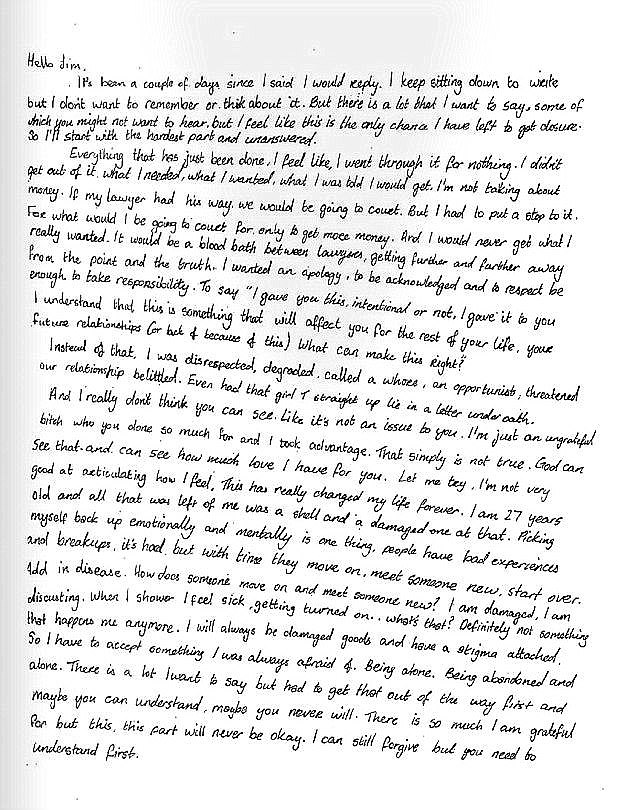 Hello Jim.
It's been a couple of days since I said I would reply. I keep sitting down to write
but I don't want to remember or think about it. But there is a lot that I want to say, some of
which you might not want to hear. but I feel like this is the only chance I have left to get closure.
So I'll start with the hardest part and unanswered.
Everything that has just been done. I feel like, I went through it for nothing. I didn't
get out of it, what I needed, what I wanted, what I was told I would get. I'm not taking about
money. If my lawyer had his way, we would be going to court. But I had to put a stop to it.
For what would I be going to court for, only to get more money. And I would never get what I
really wanted. It would be a blood bath between lawyers, getting further and further away
from the point and the truth. I wanted an apology, to be acknowledged and to respect be
enough to take responsibility. To say "I gave you this, intentional or not, I gave it to you
I understand that this is something that will affect you for the rest of your life, your
future relationships (or lack of because of this) What can make this right?"
Instead of that, I was disrespected, degraded, called a whore, an opportunist, threatened
our relationship belittled. Even had that girl T straight up lie in a letter under oath.
And I really don't think you can see. Like it's not an issue to you. I'm just an ungrateful
bitch who you done so much for and I took advantage. That simply is not true. God can
see that and can see how much love I have for you. Let me try, I'm not very
good at articulating how I feel. This has really changed my life forever. I am 27 years
old and all that was left of me was a shell and a damaged one at that. Picking
myself back up emotionally and mentally is one thing, people have bad experiences
and breakups, it's hard, but with time they move on, meet someone new, start over.
Add in disease. How does someone move on and meet someone new? I am damaged, I am
discusting. When I shower I feel sick, getting turned on.. what's that? Definitely not something
that happens me anymore. I will always be damaged goods and have a stigma attached.
So I have to accept something I was always afraid of. Being alone. Being abandoned and
alone. There is a lot I want to say but had to get that out of the way first and
maybe you can understand, maybe you never will. There is so much I am grateful
for but this, this part will never be okay. I can still forgive but you need to
understand first.